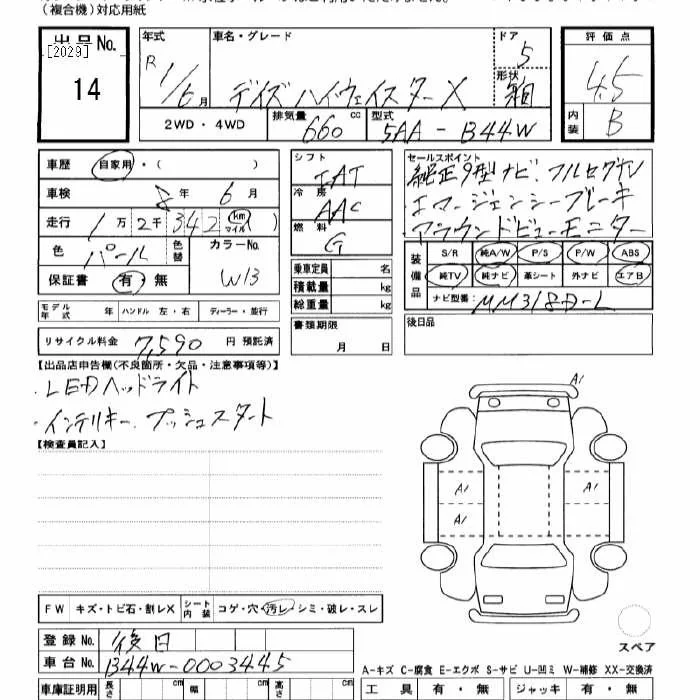 (複合機)対応用紙
出品No. 年式 車名・グレード ドア 評価点
[2029] R 1/6月 デイズ ハイウェイスターX 5 4.5
14 形状 箱
2WD・4WD 排気量 660 cc 型式 5AA-B44W 内装 B
車歴 自家用・( )
車検 8年 6月
走行 1万 2千 342 (km マイル)
色 パール 色替 カラーNo. W13
保証書 有・無
シフト IAT
冷房 AAC
燃料 G
乗車定員 名
積載量 kg
総重量 kg
書類期限 月 日
セールスポイント
純正9型ナビ・フルセグTV
・エマージェンシーブレーキ
・アラウンドビューモニター
装備品 S/R 純A/W P/S P/W ABS
純TV 純ナビ 革シート 外ナビ エアB
ナビ型番: MM318D-L
後日品
モデル年式 年 ハンドル 左・右 ディーラー・並行
リサイクル料金 7,590 円 預託済
【出品店申告欄(不良箇所・欠品・注意事項等)】
・LEDヘッドライト
・インテリキー、プッシュスタート
【検査員記入】
A1
A1
A1
A1
FW キズ・トビ石・割レX シート内装 コゲ・穴・汚レ・シミ・破レ・スレ
登録No. 後日
車台No. B44W-0003445
スペア
A-キズ C-腐食 E-エクボ S-サビ U-凹ミ W-補修 XX-交換済
車庫証明用 長さ cm 幅 cm 高さ cm
工具 有・無 ジャッキ 有・無